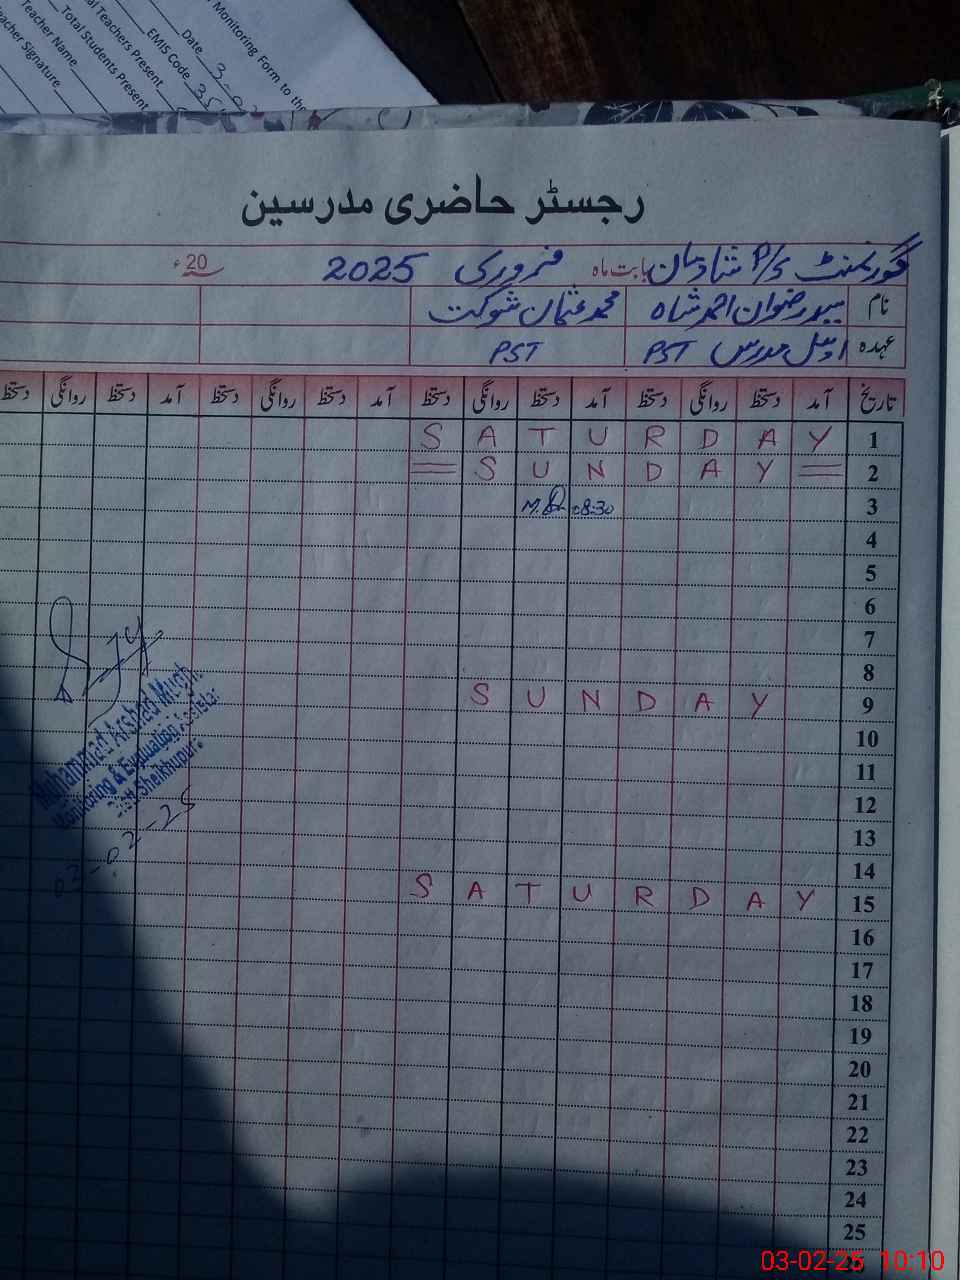 Monitoring Form to the
Date 3-02
EMIS Code 35
Teachers Present
Total Students Present
Teacher Name
Teacher Signature
رجسٹر حاضری مدرسین
گورنمنٹ P/S شادمان بابت ماہ فروری 2025 20ء
نام سید رضوان احمد شاہ محمد عثمان شوکت
عہدہ اول مدرس PST PST
تاریخ آمد دستخط روانگی دستخط آمد دستخط روانگی دستخط آمد دستخط روانگی دستخط آمد دستخط روانگی دستخط
1 SATURDAY
2 = SUNDAY =
3 08:30
4
5
6
7
8
9 SUNDAY
10
11
12
13
14
15 SATURDAY
16
17
18
19
20
21
22
23
24
25
Muhammad Arshad Mughal
Monitoring & Evaluation
Sheikhupura
03-02-25
03-02-25 10:10